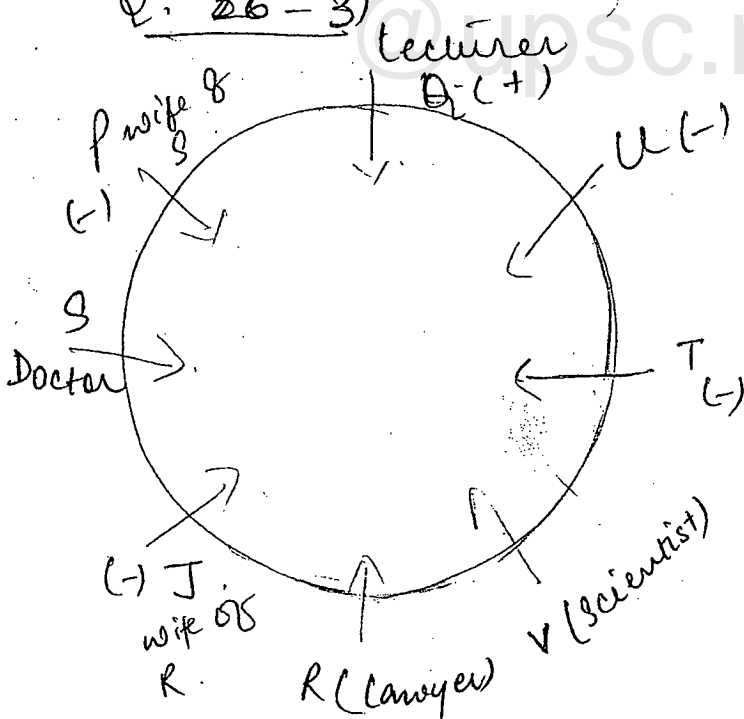 Q. 26-3)
@upsc.
Lecturer
Q (+)
P wife of
S
(-)
U (-)
S
Doctor
T
(-)
(-) J.
wife of
R.
R (Lawyer)
V (Scientist)